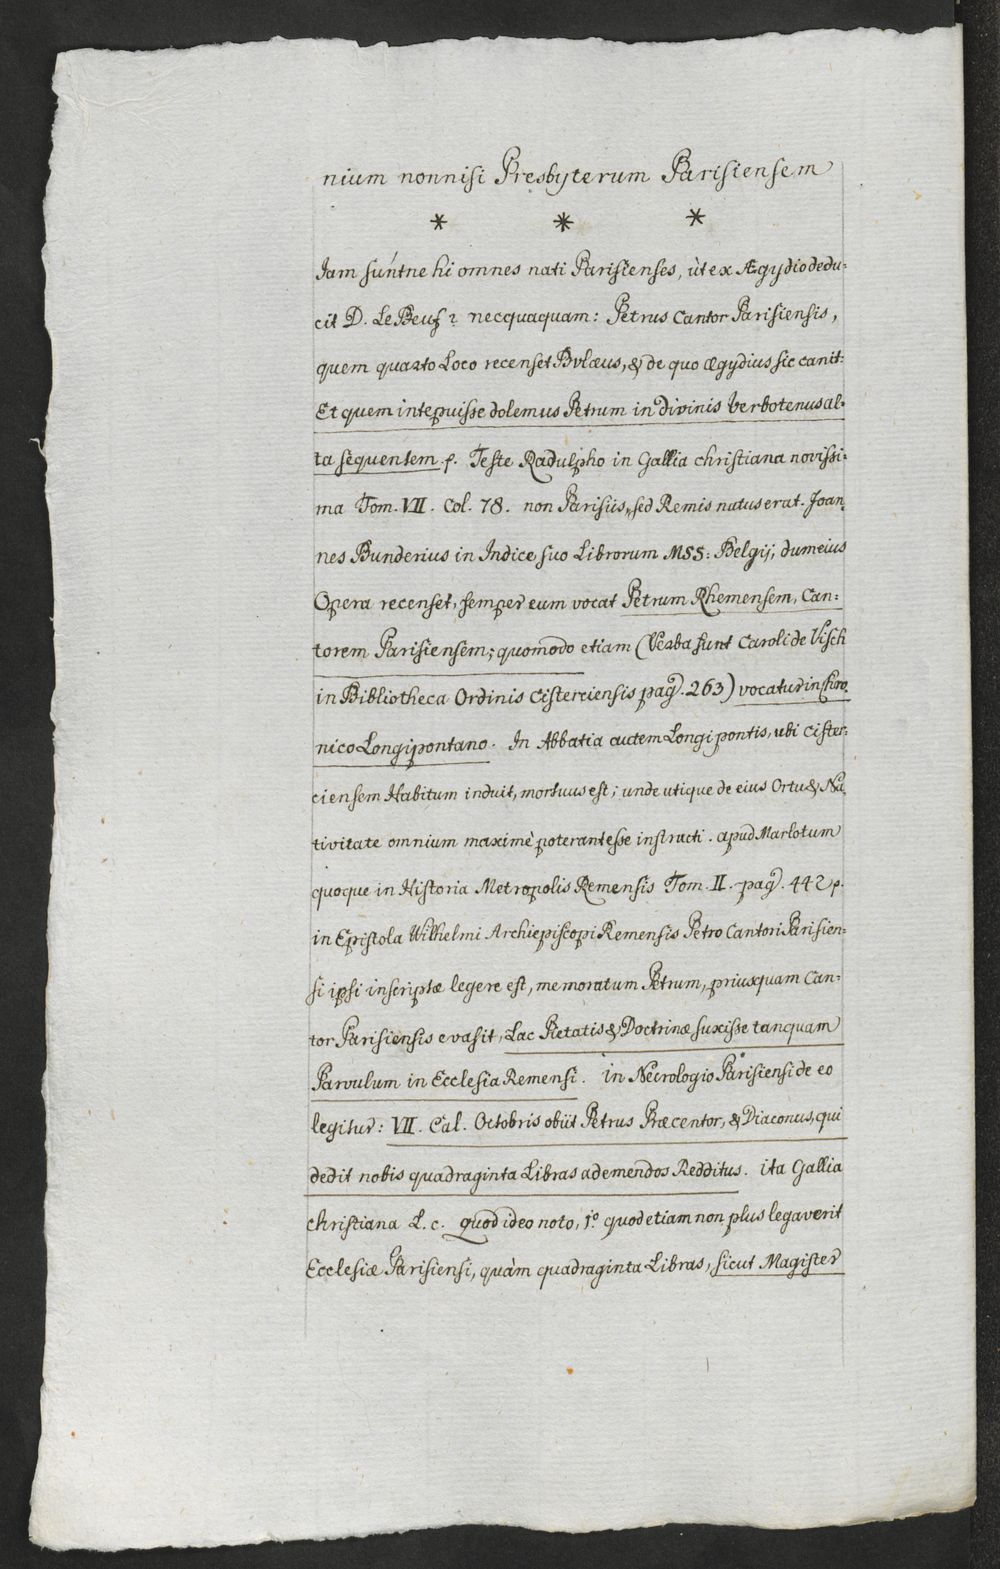 nium nonnisi Presbyterum Parisiensem
* * *
Jam suntne hi omnes nati Parisienses, ùt ex Ægydio dedu=
cit D. Le Beuf? necquaquam: Petrus Cantor Parisiensis,
quem quarto Loco recenset Bulæus, & de quo ægydius sic canit:
Et quem intepuisse dolemus Petrum in divinis verbotenus al=
ta sequentem p. Teste Radulpho in Gallia christiana novissi=
ma Tom. VII. Col. 78. non Parisiis, sed Remis natus erat. Joan=
nes Bunderius in Indice suo Librorum MSS: Belgij, dum eius
Opera recenset, semper eum vocat Petrum Rhemensem, Can=
torem Parisiensem; quomodo etiam (Verba sunt Caroli de Visch
in Bibliotheca Ordinis Cisterciensis pag. 263) vocatur in Chro=
nico Longipontano. In Abbatia autem Longipontis, ubi cister=
ciensem Habitum induit, mortuus est; unde utique de eius Ortu & Na=
tivitate omnium maximè poterant esse instructi. apud Marlotum
quoque in Historia Metropolis Remensis Tom. II. pag. 442 p.
in Epistola Wilhelmi Archiepiscopi Remensis Petro Cantori Parisien=
si ipsi inscriptæ legere est, memoratum Petrum, priusquam Can=
tor Parisiensis evasit, Lac Pietatis & Doctrinæ suxisse tanquam
Parvulum in Ecclesia Remensi. in Necrologio Parisiensi de eo
legitur: VII. Cal. Octobris obiit Petrus Præcentor, & Diaconus, qui
dedit nobis quadraginta Libras ad emendos Redditus. ita Gallia
christiana L. c. quod ideo noto, 1º. quod etiam non plus legaverit
Ecclesiæ Parisiensi, quàm quadraginta Libras, sicut Magister